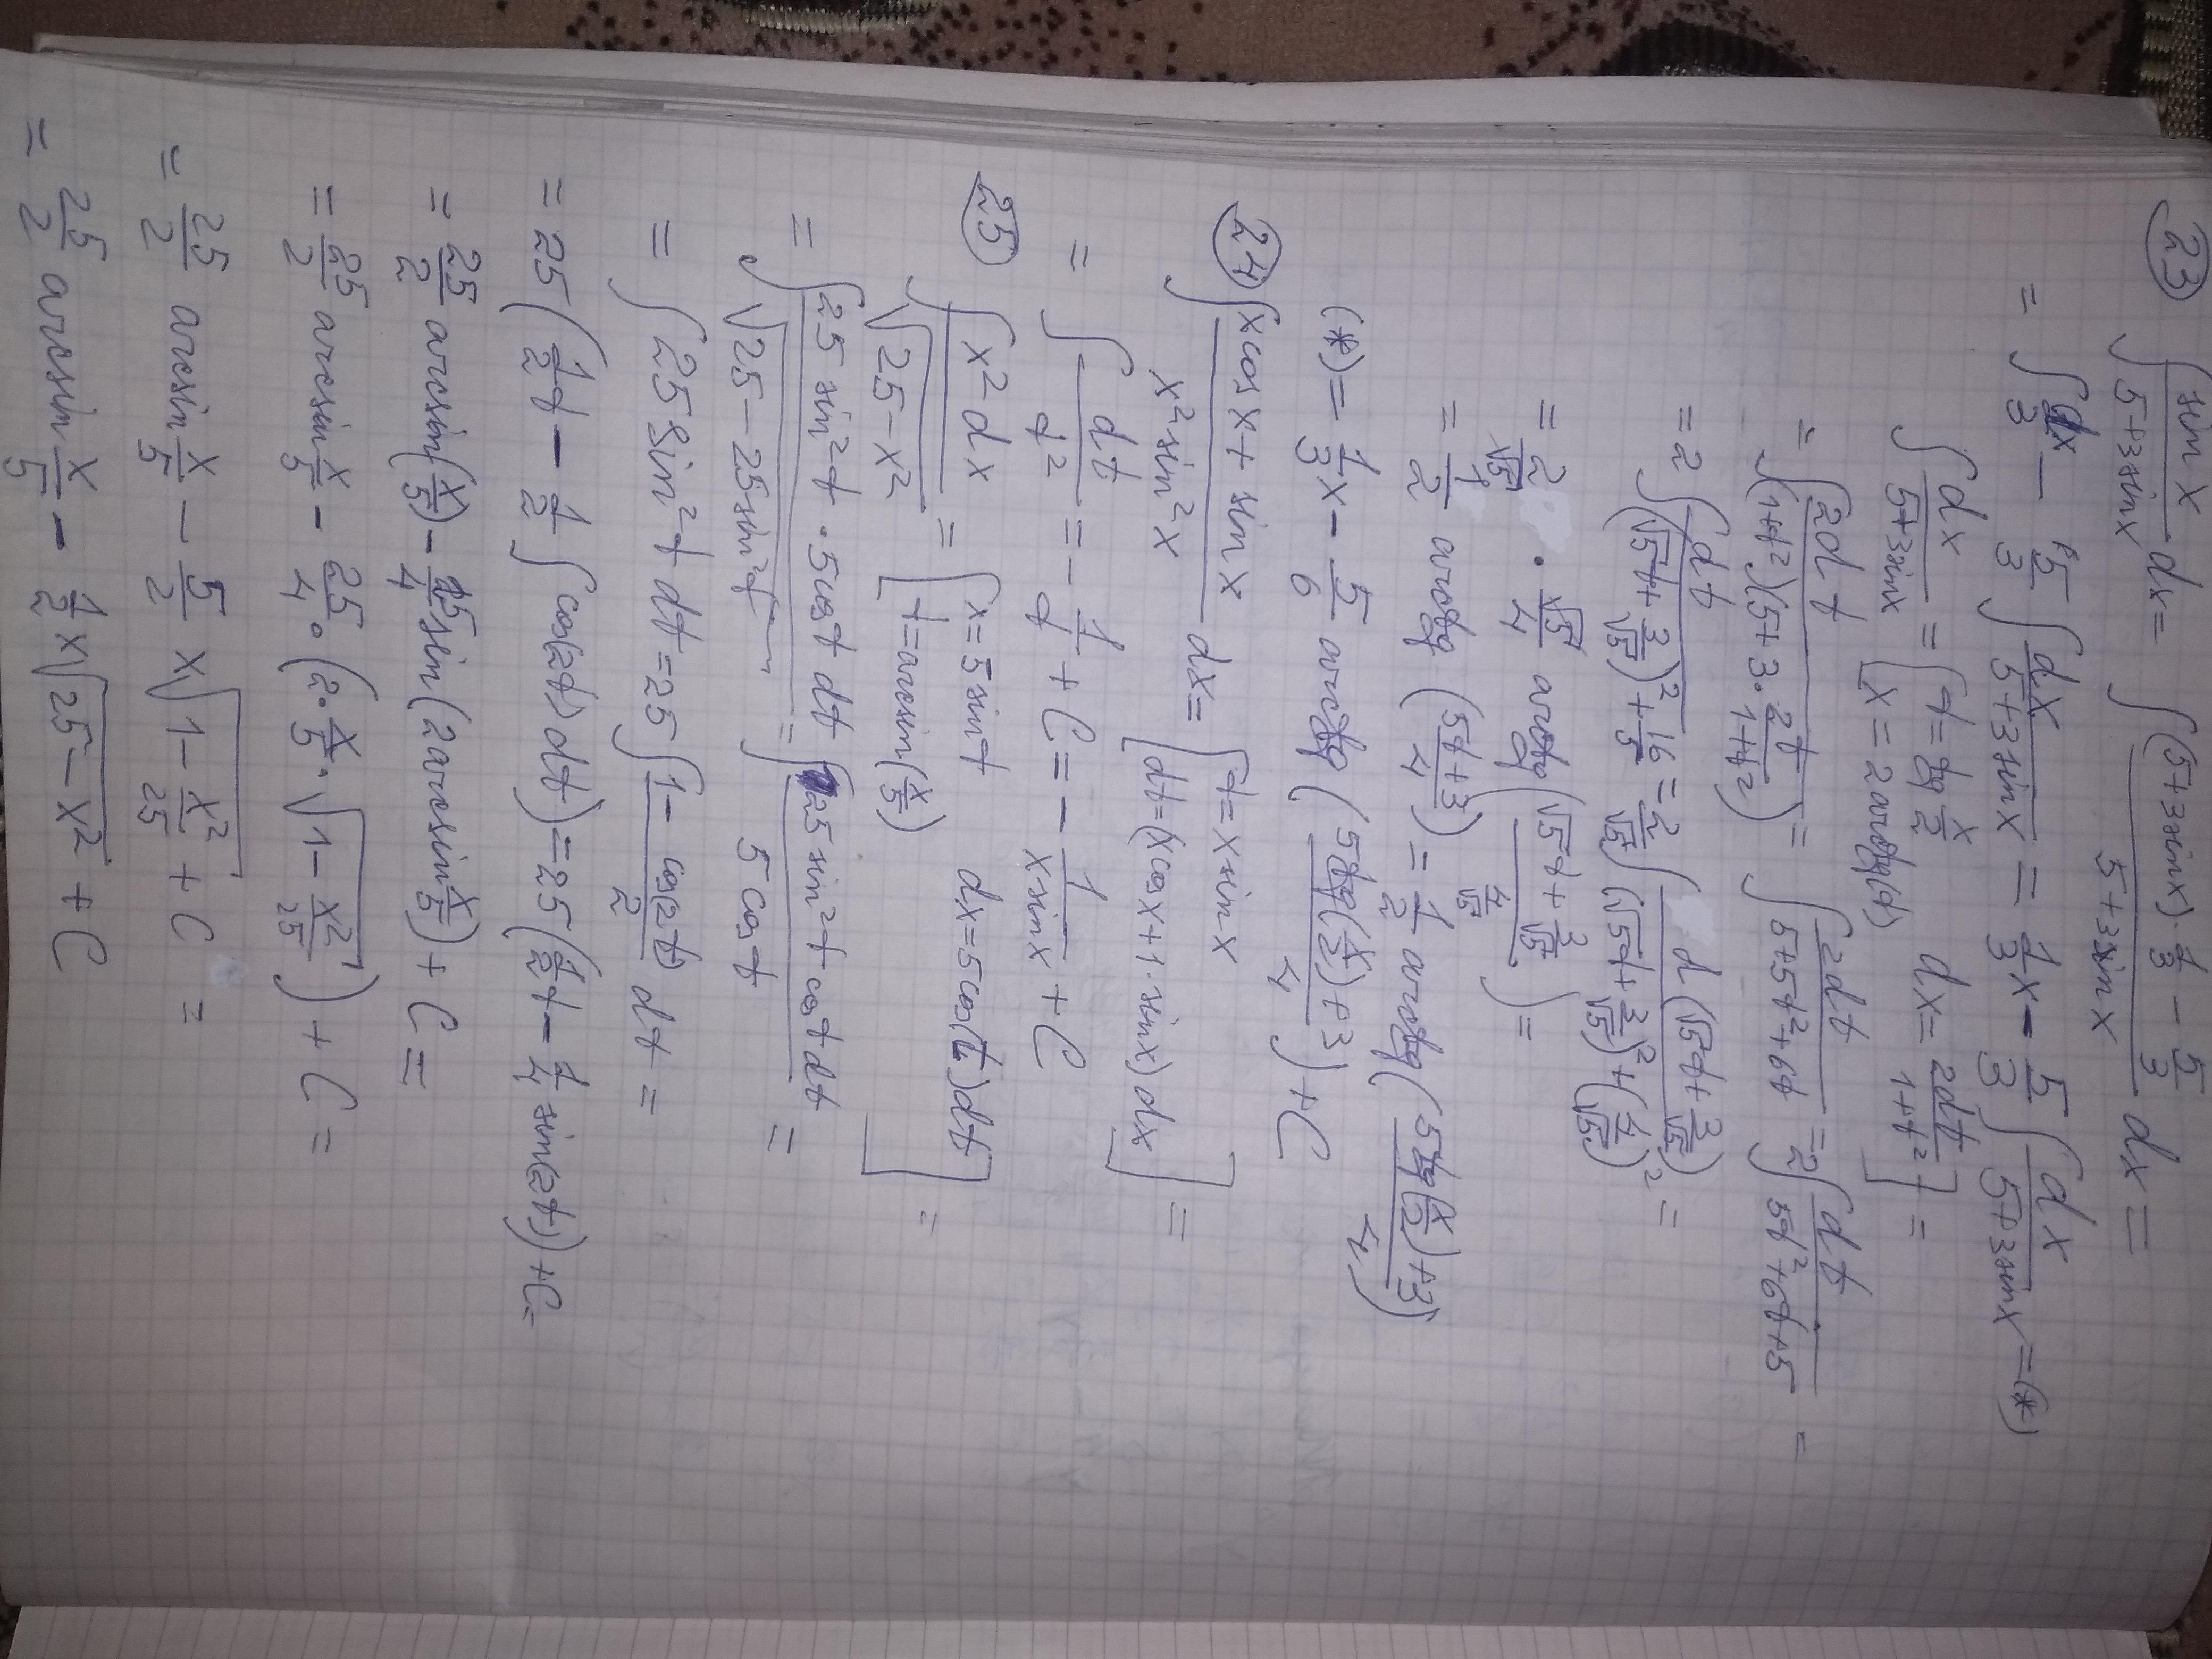 23 ∫ sin x / (5+3sin x) dx = ∫ ((5+3sin x)·1/3 − 5/3) / (5+3sin x) dx =
= ∫ dx/3 − 5/3 ∫ dx/(5+3sin x) = 1/3 x − 5/3 ∫ dx/(5+3sin x) = (*)
∫ dx/(5+3sin x) = [ t = tg x/2 dx = 2dt/(1+t²)
x = 2arctg(t) ] =
= ∫ 2dt / ((1+t²)(5+3·2t/(1+t²))) = ∫ 2dt/(5+5t²+6t) = 2∫ dt/(5t²+6t+5) =
= 2 ∫ dt / ((√5t + 3/√5)² + 16/5) = 2/√5 ∫ d(√5t + 3/√5) / ((√5t + 3/√5)² + (4/√5)²) =
= 2/√5 · √5/4 arctg ((√5t + 3/√5) / (4/√5)) =
= 1/2 arctg ((5t+3)/4) = 1/2 arctg ((5tg(x/2)+3)/4)
(*) = 1/3 x − 5/6 arctg ((5tg(x/2)+3)/4) + C
24 ∫ (x cos x + sin x) / (x² sin² x) dx = [ t = x sin x
dt = (x cos x + 1·sin x) dx ] =
= ∫ dt/t² = − 1/t + C = − 1/(x sin x) + C
25 ∫ x² dx / √(25−x²) = [ x = 5 sin t dx = 5cos(t)dt
t = arcsin(x/5) ] =
= ∫ 25 sin² t · 5cos t dt / √(25 − 25sin² t) = ∫ 25 sin² t cos t dt / (5 cos t) =
= ∫ 25 sin² t dt = 25 ∫ (1 − cos(2t))/2 dt =
= 25 (1/2 t − 1/2 ∫ cos(2t) dt) = 25 (1/2 t − 1/4 sin(2t)) + C =
= 25/2 arcsin(x/5) − 25/4 sin(2arcsin x/5) + C =
= 25/2 arcsin x/5 − 25/4 · (2 · x/5 · √(1 − x²/25)) + C =
= 25/2 arcsin x/5 − 5/2 x √(1 − x²/25) + C =
= 25/2 arcsin x/5 − 1/2 x √(25 − x²) + C